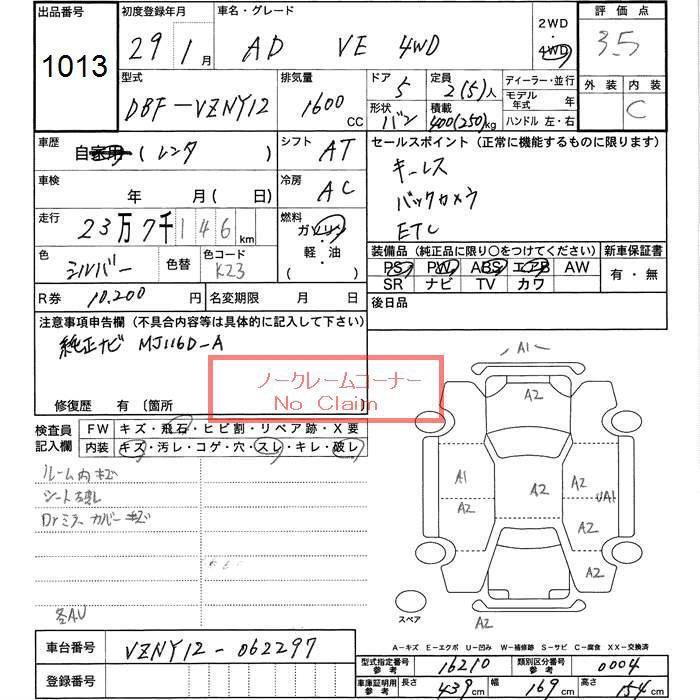 出品番号 初度登録年月 車名・グレード 2WD 評価点
1013 29年1月 AD VE 4WD 4WD 3.5
型式 排気量 ドア 5 定員 2(5)人 ディーラー・並行 外装 内装
DBF-VZNY12 1600CC 形状 バン 積載 400(250)kg モデル年式 年 C
ハンドル 左・右
車歴 自家用(レンタ) シフト AT セールスポイント(正常に機能するものに限ります)
車検 年 月(日) 冷房 AC キーレス
バックカメラ
走行 23万7千146km 燃料 ガソリン ETC
軽・油
( )
色 シルバー 色替 色コード K23 装備品(純正品に限り○をつけてください) 新車保証書
PS PW ABS エアB AW 有・無
SR ナビ TV カワ
R券 10.200円 名変期限 月 日 後日品
注意事項申告欄(不具合内容等は具体的に記入して下さい)
純正ナビ MJ116D-A
ノークレームコーナー
No Claim
修復歴 有(箇所 )
検査員記入欄 FW キズ・飛石・ヒビ割・リペア跡・X要
内装 キズ・汚レ・コゲ・穴・スレ・キレ・破レ
ルーム内キズ
シート破れ
Drミラーカバーキズ
各AU
A1
A2
A1 A2 A2 UA1
A2 A2
A2 A2
スペア
A-キズ E-エクボ U-凹み W-補修跡 S-サビ C-腐食 XX-交換済
車台番号 VZNY12-062297
型式指定番号 参考 16210 類別区分番号 参考 0004
登録番号
車庫証明用 参考 長さ 439cm 幅 169cm 高さ 154cm